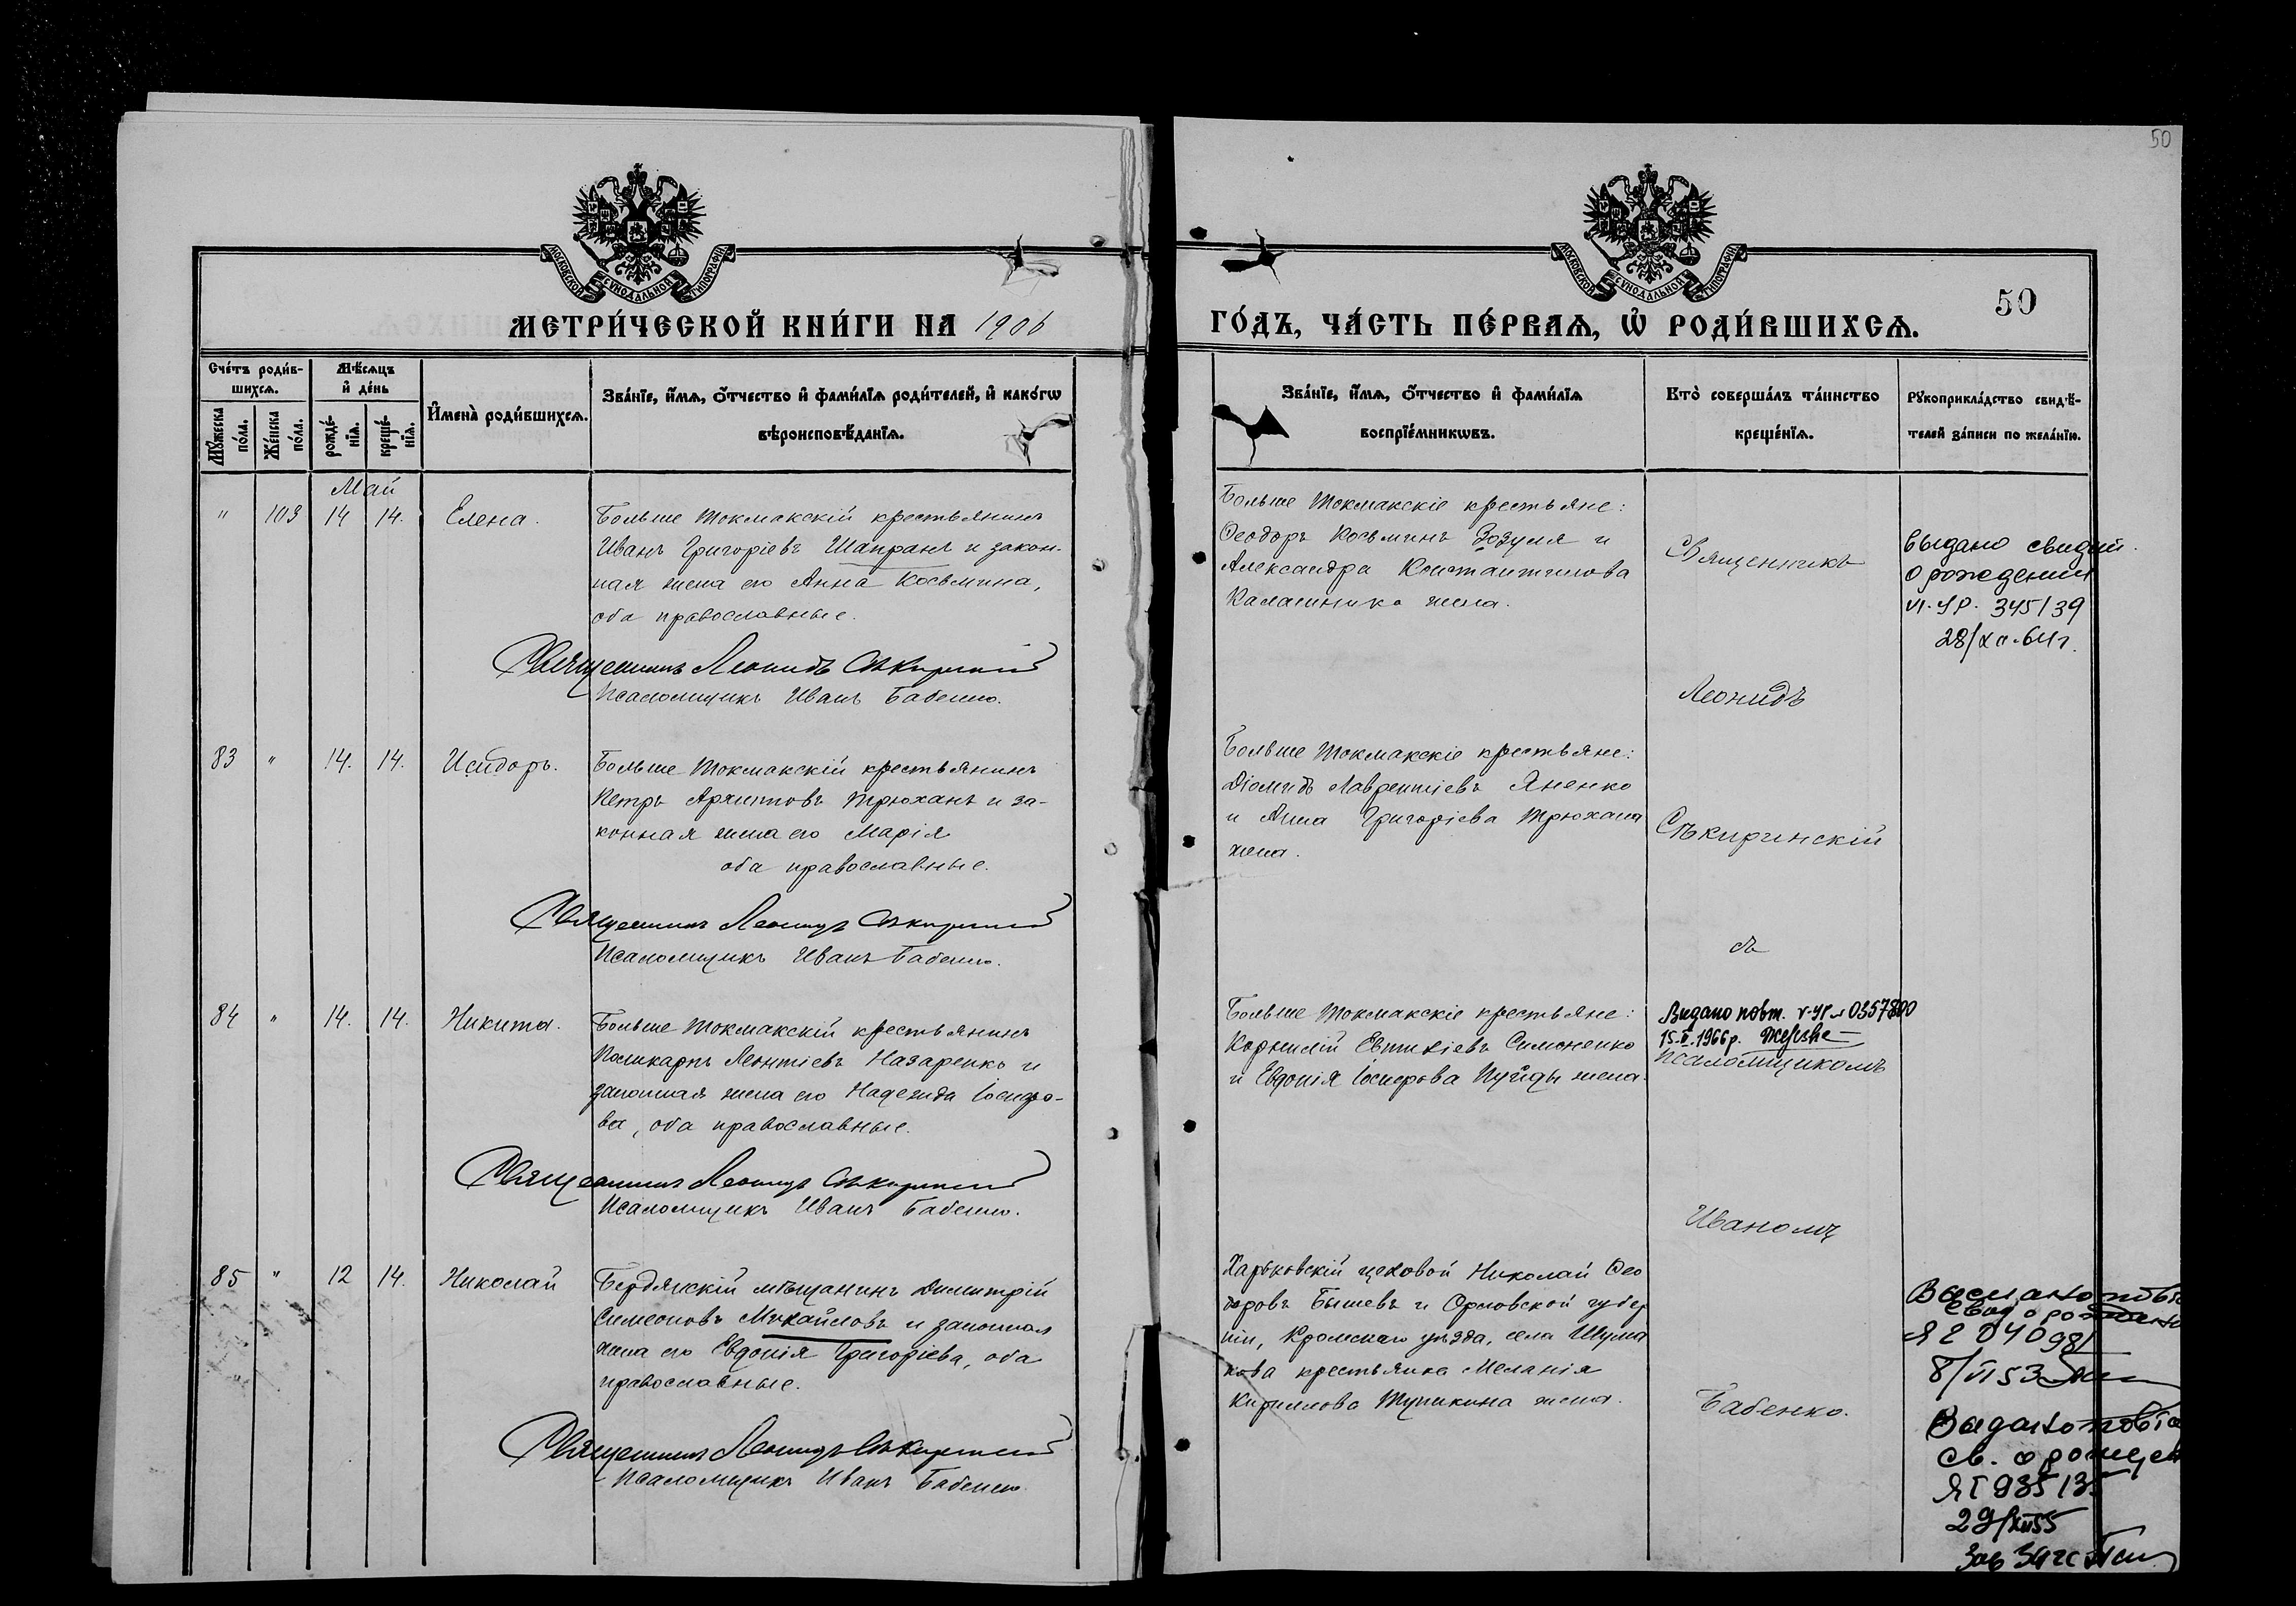 50
МОСКОВСКОЙ СѴНОДАЛЬНОЙ ТИПОГРАФІИ
МОСКОВСКОЙ СѴНОДАЛЬНОЙ ТИПОГРАФІИ
50
МЕТРИ́ЧЕСКОЙ КНИ́ГИ НА 1906
ГО́ДЪ, ЧА́СТЬ ПЕ́РВАѦ, Ѡ҆ РОДИ́ВШИХСѦ.
Сче́тъ роди́в-
шихсѧ.
Мꙋ́жеска по́ла.
Же́нска по́ла.
Мѣ́сѧцъ
и҆ де́нь
рожде́-
нїѧ.
креще́-
нїѧ.
И҆мена̀ роди́вшихсѧ.
Зва́нїе, и҆́мѧ, ѻ҆́тчество и҆ фами́лїѧ роди́телей, и҆ како́гѡ
вѣроисповѣ́данїѧ.
Зва́нїе, и҆́мѧ, ѻ҆́тчество и҆ фами́лїѧ
воспрїе́мникѡвъ.
Кто̀ соверша́лъ та́инство
креще́нїѧ.
Рꙋкоприкла́дство свидѣ́-
телей за́писи по жела́нїю.
Май
" 103 14 14. Елена.
Больше Токмакскій крестьянинъ
Иванъ Григоріевъ Шапранъ и закон-
ная жена его Анна Косьмина,
оба православные.
Священникъ Леонидъ Сѣкиринскій
Псаломщикъ Иванъ Бабенко.
Больше Токмакскіе крестьяне:
Ѳеодоръ Косьминъ Зозуля и
Александра Константинова
Каласинико жена.
Священникъ
Леонидъ
Выдано свидет.
о рождении
VI-УР. 345139
28/XII-64г.
83 " 14. 14. Исидоръ.
Больше Токмакскій крестьянинъ
Петръ Архиповъ Трюханъ и за-
конная жена его Марія
оба православные.
Священникъ Леонидъ Сѣкиринскій
Псаломщикъ Иванъ Бабенко.
Больше Токмакскіе крестьяне:
Діомидъ Лаврентіевъ Яненко
и Анна Григоріева Трюхана
жена.
Сѣкиринскій
съ
84 " 14. 14. Никита.
Больше Токмакскій крестьянинъ
Поликарпъ Леонтіевъ Назаренко и
законная жена его Надежда Іосифо-
ва, оба православные.
Священникъ Леонидъ Сѣкиринскій
Псаломщикъ Иванъ Бабенко.
Больше Токмакскіе крестьяне:
Корнилій Евтихіевъ Симоненко
и Евдокія Іосифова Пуйды жена.
Видано повт. V-УР
15-II.1966р.
псаломщикомъ
Иваномъ
85 " 12 14. Николай
Бердянскій мѣщанинъ Димитрій
Симеоновъ Михайловъ и законная
жена его Евдокія Григоріева, оба
православные.
Священникъ Леонидъ Сѣкиринскій
Псаломщикъ Иванъ Бабенко.
Харьковскій цеховой Николай Ѳео
доровъ Бышевъ и Орловской губер
ніи, Кромскаго уѣзда, села Шума
кова крестьянка Меланія
Кириллова Тупикина жена.
Бабенко.
8/VI 53
св. о рожден
ЯГ 935135
29/XII55
Зав ЗАГС